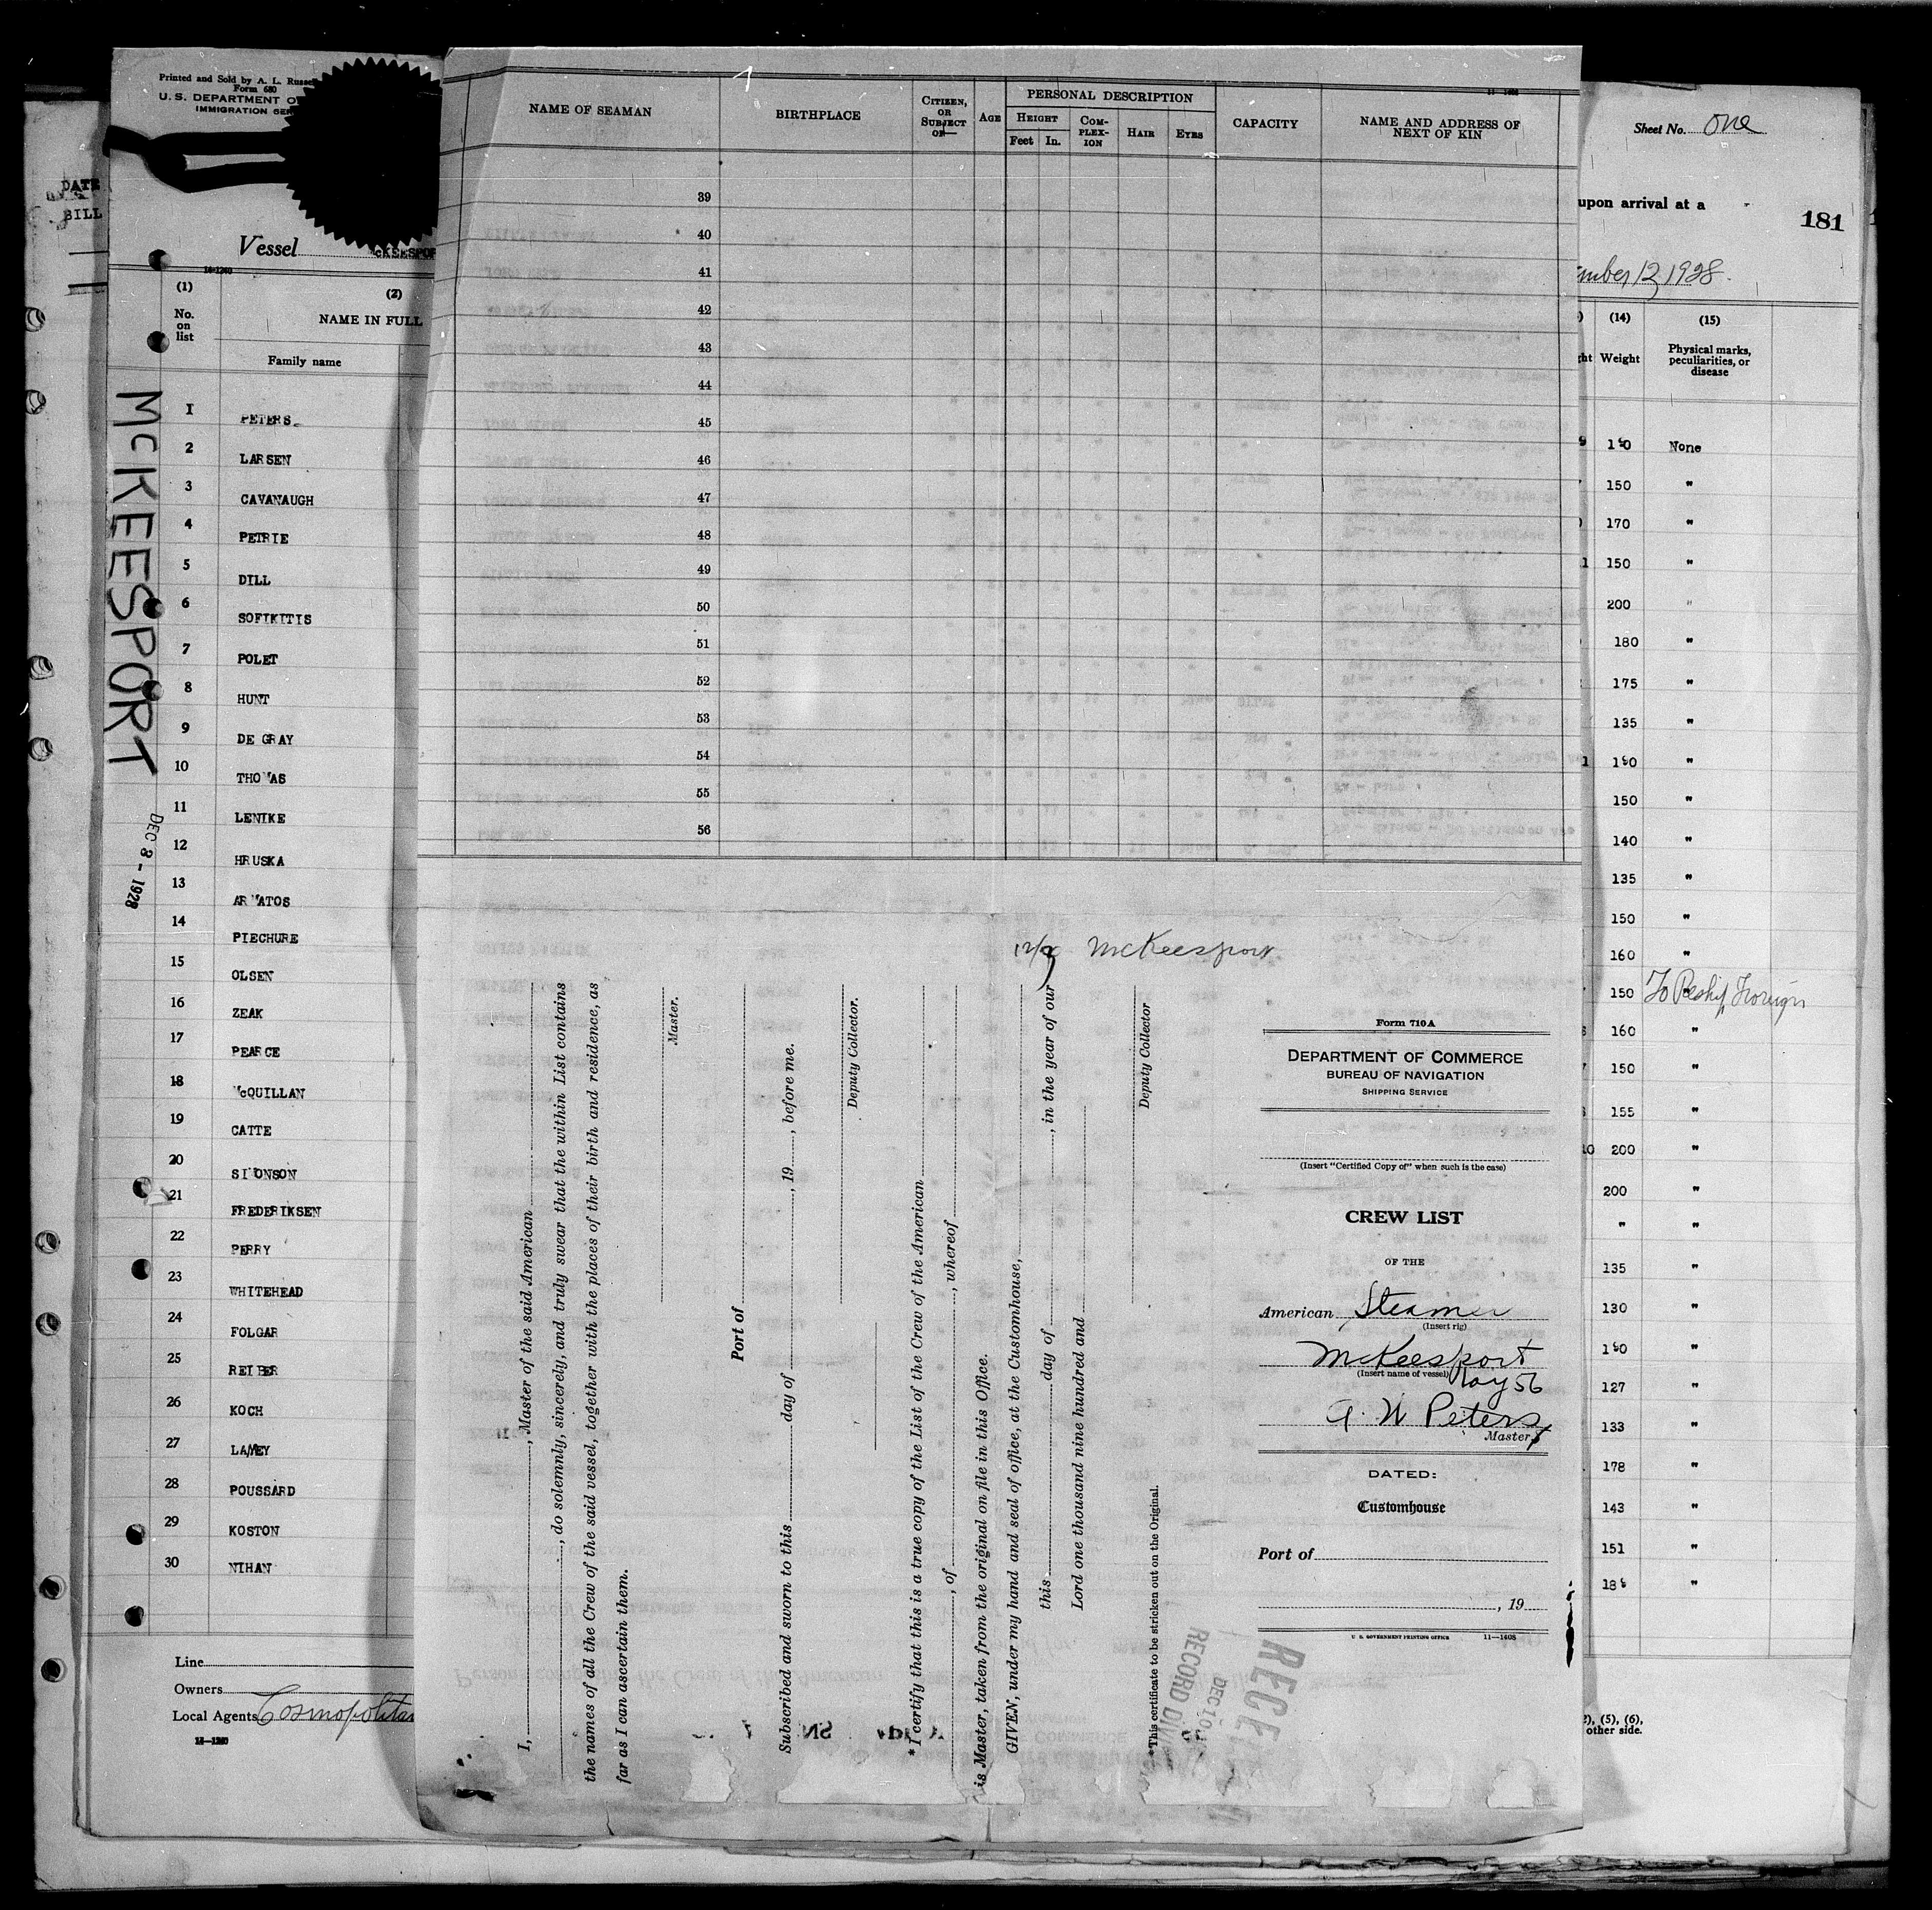 Printed and Sold by A. L. Russe
Form 680
U. S. DEPARTMENT O
IMMIGRATION SER
DATE
BILL
Vessel McKEESPOR
14-1240
(1)
(2)
No. on list
NAME IN FULL
Family name
McKEESPORT
DEC 8 - 1928
1 PETERS
2 LARSEN
3 CAVANAUGH
4 PETRIE
5 DILL
6 SOFIKITIS
7 POLET
8 HUNT
9 DE GRAY
10 THOMAS
11 LENIKE
12 HRUSKA
13 ARMATOS
14 PIECHURE
15 OLSEN
16 ZEAK
17 PEARCE
18 McQUILLAN
19 CATTE
20 SIMONSON
21 FREDERIKSEN
22 PERRY
23 WHITEHEAD
24 FOLGAR
25 REIBER
26 KOCH
27 LAMEY
28 POUSSARD
29 KOSTON
30 NIHAN
Line
Owners
Local Agents Cosmopolitan
NAME OF SEAMAN
BIRTHPLACE
CITIZEN, OR SUBJECT OF—
AGE
PERSONAL DESCRIPTION
HEIGHT
Feet In.
COM-PLEX-ION
HAIR
EYES
CAPACITY
NAME AND ADDRESS OF NEXT OF KIN
39
40
41
42
43
44
45
46
47
48
49
50
51
52
53
54
55
56
McKeesport
I, , Master of the said American
, do solemnly, sincerely, and truly swear that the within List contains
the names of all the Crew of the said vessel, together with the places of their birth and residence, as
far as I can ascertain them.
Master.
Port of
Subscribed and sworn to this day of , 19 , before me.
Deputy Collector.
*I certify that this is a true copy of the List of the Crew of the American
, of , whereof
is Master, taken from the original on file in this Office.
GIVEN, under my hand and seal of office, at the Customhouse,
this day of , in the year of our
Lord one thousand nine hundred and
Deputy Collector
*This certificate to be stricken out on the Original.
RECORD DIV
DEC 10
RECEI
Form 710A
DEPARTMENT OF COMMERCE
BUREAU OF NAVIGATION
SHIPPING SERVICE
(Insert "Certified Copy of" when such is the case)
CREW LIST
OF THE
American Steamer
(Insert rig)
McKeesport
(Insert name of vessel)
Ray 56
A. W Peters
Master
DATED:
Customhouse
Port of
, 19
U. S. GOVERNMENT PRINTING OFFICE 11—1408
Sheet No. One
upon arrival at a
181
mber, 12, 1928.
(14)
(15)
ght Weight
Physical marks, peculiarities, or disease
None
150 "
170 "
150 "
200 "
180 "
175 "
135 "
"
150 "
140 "
135 "
150 "
160 "
150 " To Reship Foreign
160 "
150 "
155 "
200 "
200 "
" "
135 "
130 "
"
127 "
133 "
178 "
143 "
151 "
"
), (5), (6),
other side.